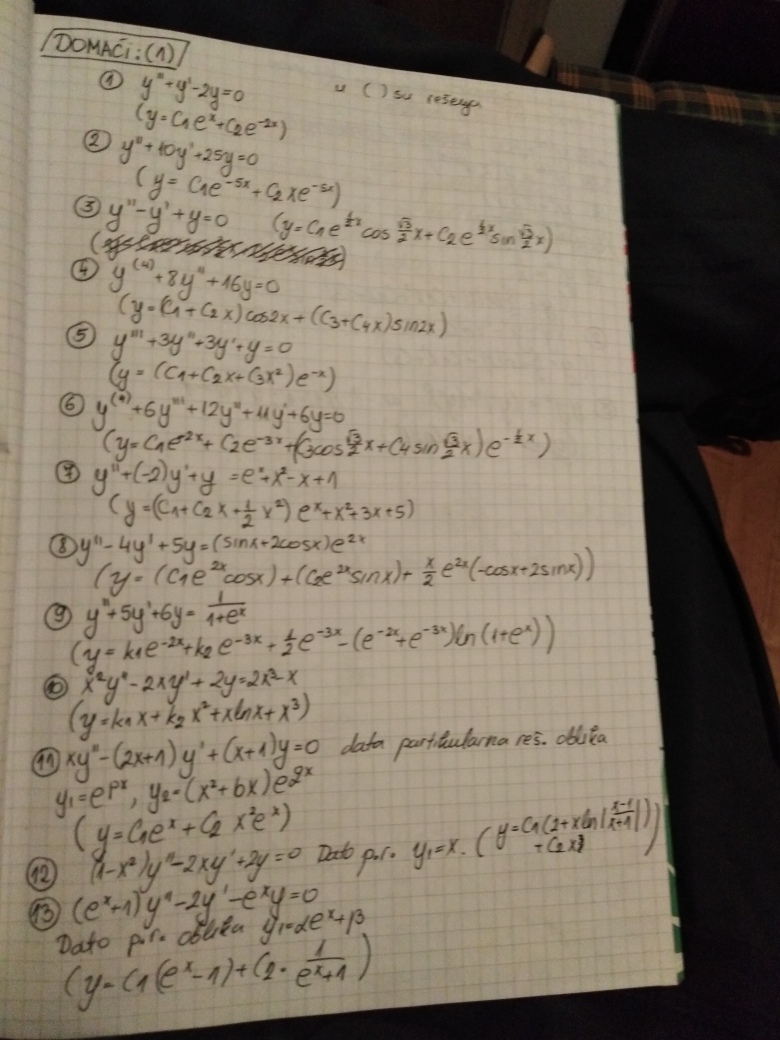 DOMAĆI: (1)
u ( ) su rešenja
① y''+y'-2y=0
(y=C1e^x+C2e^{-2x})
② y''+10y'+25y=0
(y= C1e^{-5x}+C2xe^{-5x})
③ y''-y'+y=0 (y=C1e^{1/2x}cos √3/2x+C2e^{1/2x}sin √3/2x)
④ y^{(4)}+8y''+16y=0
(y=(C1+C2x)cos2x+(C3+C4x)sin2x)
⑤ y'''+3y''+3y'+y=0
(y=(C1+C2x+C3x²)e^{-x})
⑥ y^{(4)}+6y'''+12y''+11y'+6y=0
(y=C1e^{-2x}+C2e^{-3x}+(C3cos √3/2x+C4sin √3/2x)e^{-1/2x})
⑦ y''+(-2)y'+y=e^x+x²-x+1
(y=(C1+C2x+1/2x²)e^x+x²+3x+5)
⑧ y''-4y'+5y=(sinx+2cosx)e^{2x}
(y=(C1e^{2x}cosx)+(C2e^{2x}sinx)+x/2e^{2x}(-cosx+2sinx))
⑨ y''+5y'+6y=1/(1+e^x)
(y=k1e^{-2x}+k2e^{-3x}+1/2e^{-3x}-(e^{-2x}+e^{-3x})ln(1+e^x))
⑩ x²y''-2xy'+2y=2x³-x
(y=k1x+k2x²+xlnx+x³)
⑪ xy''-(2x+1)y'+(x+1)y=0 data partikularna reš. oblika
y1=e^{px}, y2=(x²+bx)e^{qx}
(y=C1e^x+C2x²e^x)
⑫ (1-x²)y''-2xy'+2y=0 Dato p.r. y1=x. (y=C1(2+xln|(x-1)/(x+1)|)
+C2x)
⑬ (e^x+1)y''-2y'-e^xy=0
Dato p.r. oblika y1=αe^x+β
(y=C1(e^x-1)+C2·1/(e^x+1))